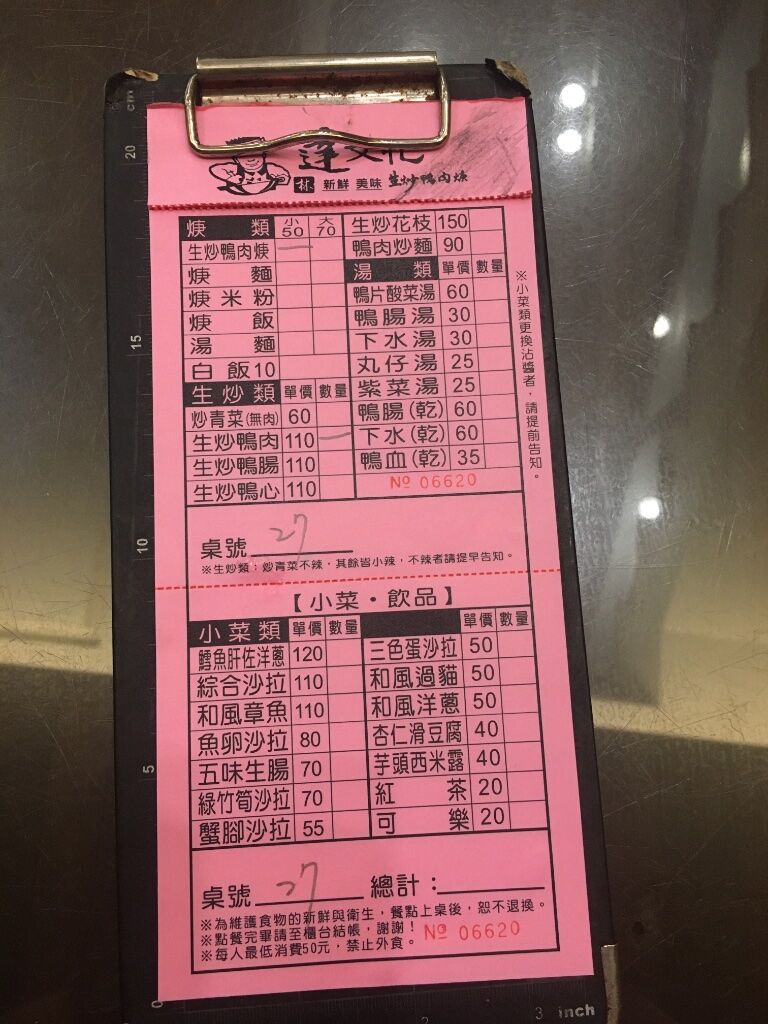 新鮮 美味 生炒鴨肉焿
焿類 小50 大70
生炒鴨肉焿
焿麵
焿米粉
焿飯
湯麵
白飯10
生炒類 單價 數量
炒青菜(無肉) 60
生炒鴨肉 110
生炒鴨腸 110
生炒鴨心 110
生炒花枝 150
鴨肉炒麵 90
湯類 單價 數量
鴨片酸菜湯 60
鴨腸湯 30
下水湯 30
丸仔湯 25
紫菜湯 25
鴨腸(乾) 60
下水(乾) 60
鴨血(乾) 35
№ 06620
※小菜類更換沾醬者，請提前告知。
桌號 27
※生炒類：炒青菜不辣，其餘皆小辣，不辣者請提早告知。
【小菜・飲品】
小菜類 單價 數量
鱈魚肝佐洋蔥 120
綜合沙拉 110
和風章魚 110
魚卵沙拉 80
五味生腸 70
綠竹筍沙拉 70
蟹腳沙拉 55
單價 數量
三色蛋沙拉 50
和風過貓 50
和風洋蔥 50
杏仁滑豆腐 40
芋頭西米露 40
紅茶 20
可樂 20
桌號 27 總計：
※為維護食物的新鮮與衛生，餐點上桌後，恕不退換。
※點餐完畢請至櫃台結帳，謝謝！ № 06620
※每人最低消費50元，禁止外食。
cm
20
15
10
5
0
2
3 inch